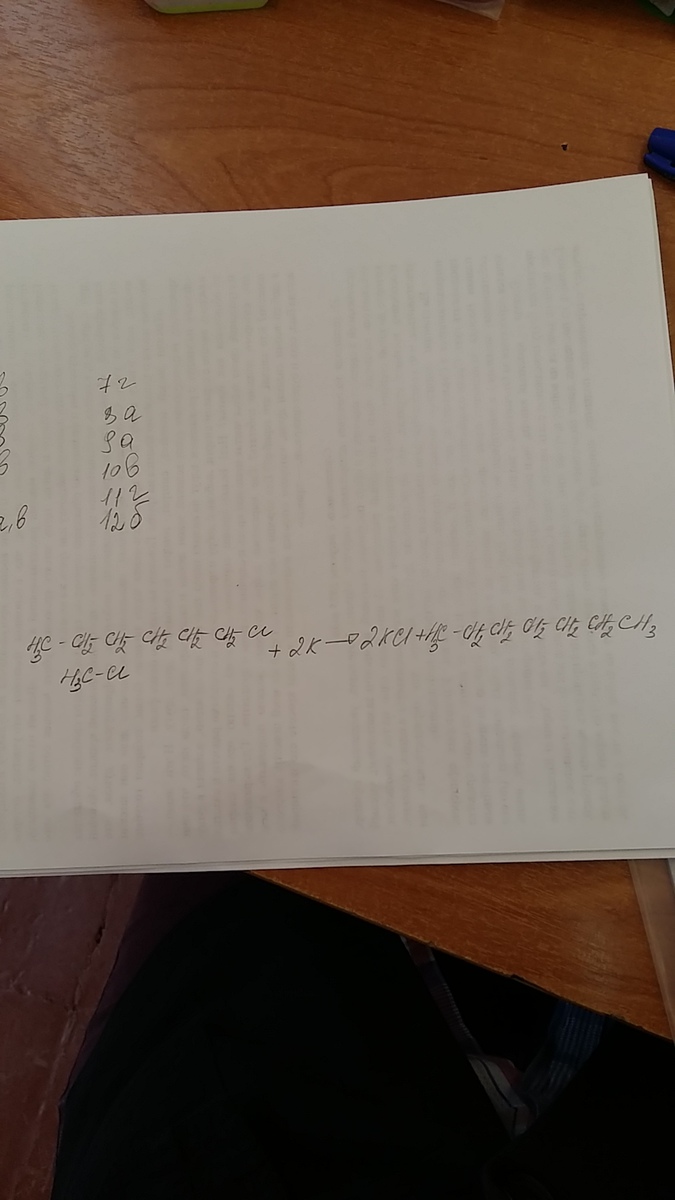 в 7г
в 8а
в 9а
в 10в
11г
а,в 12б
H3C-CH2-CH2-CH2-CH2-CH2-Cl + 2K → 2KCl + H3C-CH2-CH2-CH2-CH2-CH2 CH3
H3C-Cl